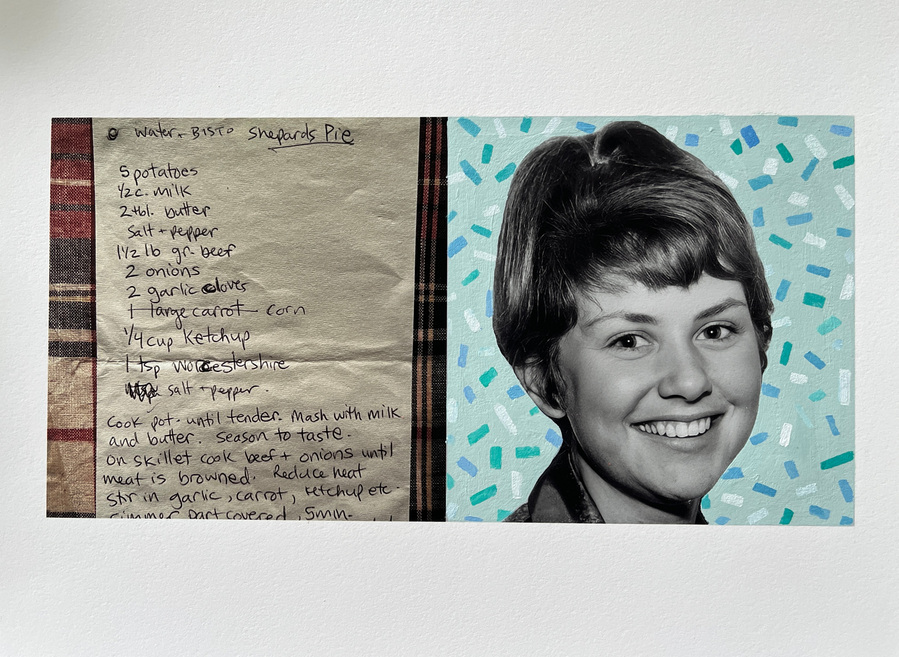 Water + BISTO Shepards Pie
5 potatoes
1/2 c. milk
2 tbl. butter
Salt + pepper
1 1/2 lb gr. beef
2 onions
2 garlic cloves
1 large carrot - corn
1/4 cup Ketchup
1 tsp Worcestershire
salt + pepper.
Cook pot. until tender. Mash with milk
and butter. Season to taste.
On skillet cook beef + onions until
meat is browned. Reduce heat
stir in garlic, carrot, ketchup etc.
simmer part covered, 5 min.